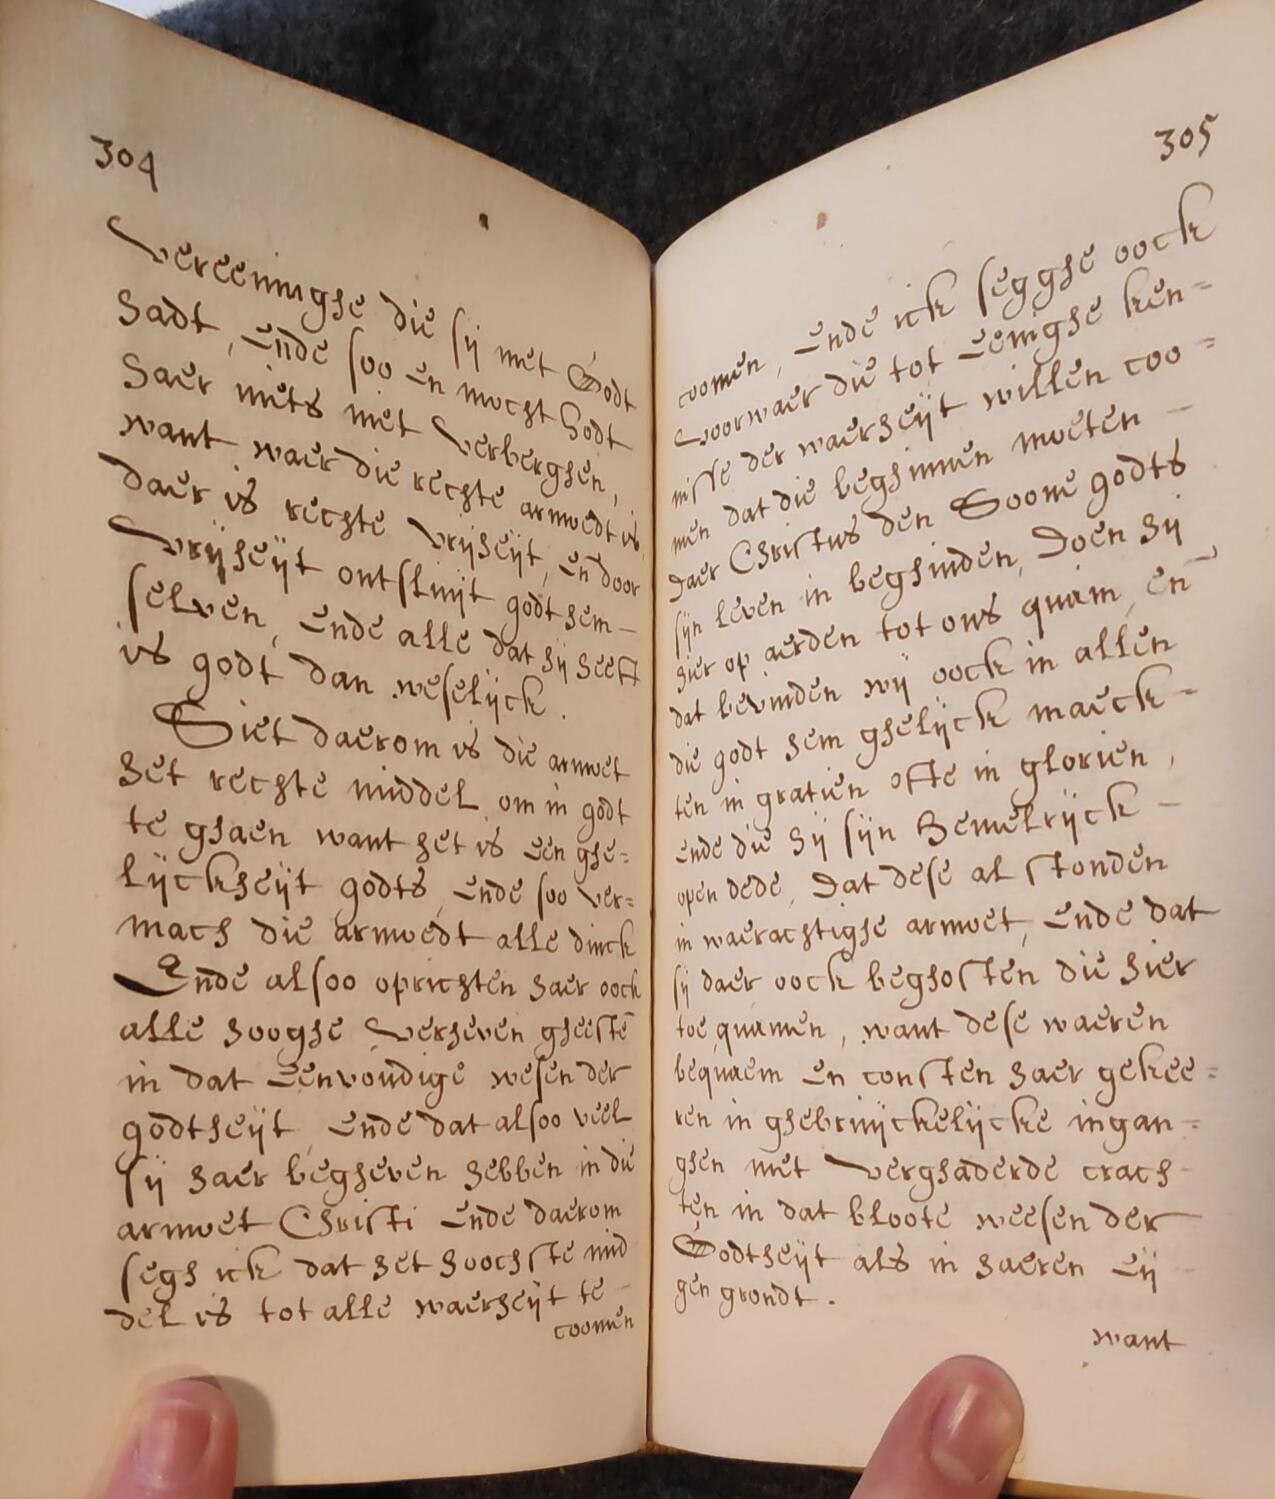 304
Vereeninghe die sij met Godt
hadt, Ende soo en mocht Godt
haer niets niet Verberghen,
want waer die rechte armoedt is,
daer is rechte Vrijheijt, en door
Vrijheijt ontsluijt godt hem-
selven, Ende alle dat hij heeft
is godt dan weselijck.
Siet daerom is die armoet
het rechte middel om in godt
te ghaen want het is een ghe=
lijckheijt godts, Ende soo ver=
mach die armoedt alle dinck
Ende alsoo oprichten haer oock
alle hooghe Verheven gheestē
in dat eenvoudige wesen der
godtheijt, Ende dat alsoo veel
sij haer begheven hebben in die
armoet Christi Ende daerom
segh ick dat het hoochste mid
del is tot alle waerheijt te -
coomen
305
coomen, Ende ick segghe oock
Voorwaer die tot eenighe ken=
nisse der waerheijt willen coo=
men dat die beghinnen moeten -
daer Christus den Soone godts
sijn leven in beghinden, doen hij
hier op aerden tot ons quam, en
dat bevinden wij oock in allen
die godt hem ghelijck maeck-
ten in gratien ofte in glorien,
Ende die hij sijn Hemelrijck -
open dede, dat dese al stonden
in waerachtighe armoet, Ende dat
sij daer oock beghosten die hier
toe quamen, want dese waeren
bequaem en consten haer gekee=
ren in ghebruijckelijcke ingan=
ghen met Verghaderde crach-
ten in dat bloote weesen der
Godtheijt als in haeren eij-
gen grondt.
want